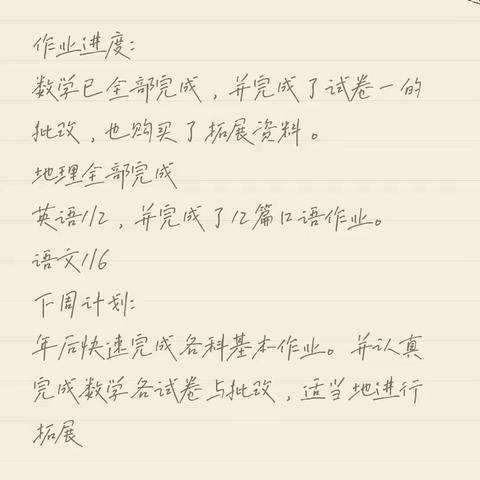 作业进度：
数学已全部完成，并完成了试卷一的
批改，也购买了拓展资料。
地理全部完成
英语1/2，并完成了12篇口语作业。
语文1/6
下周计划：
年后快速完成各科基本作业。并认真
完成数学各试卷与批改，适当地进行
拓展